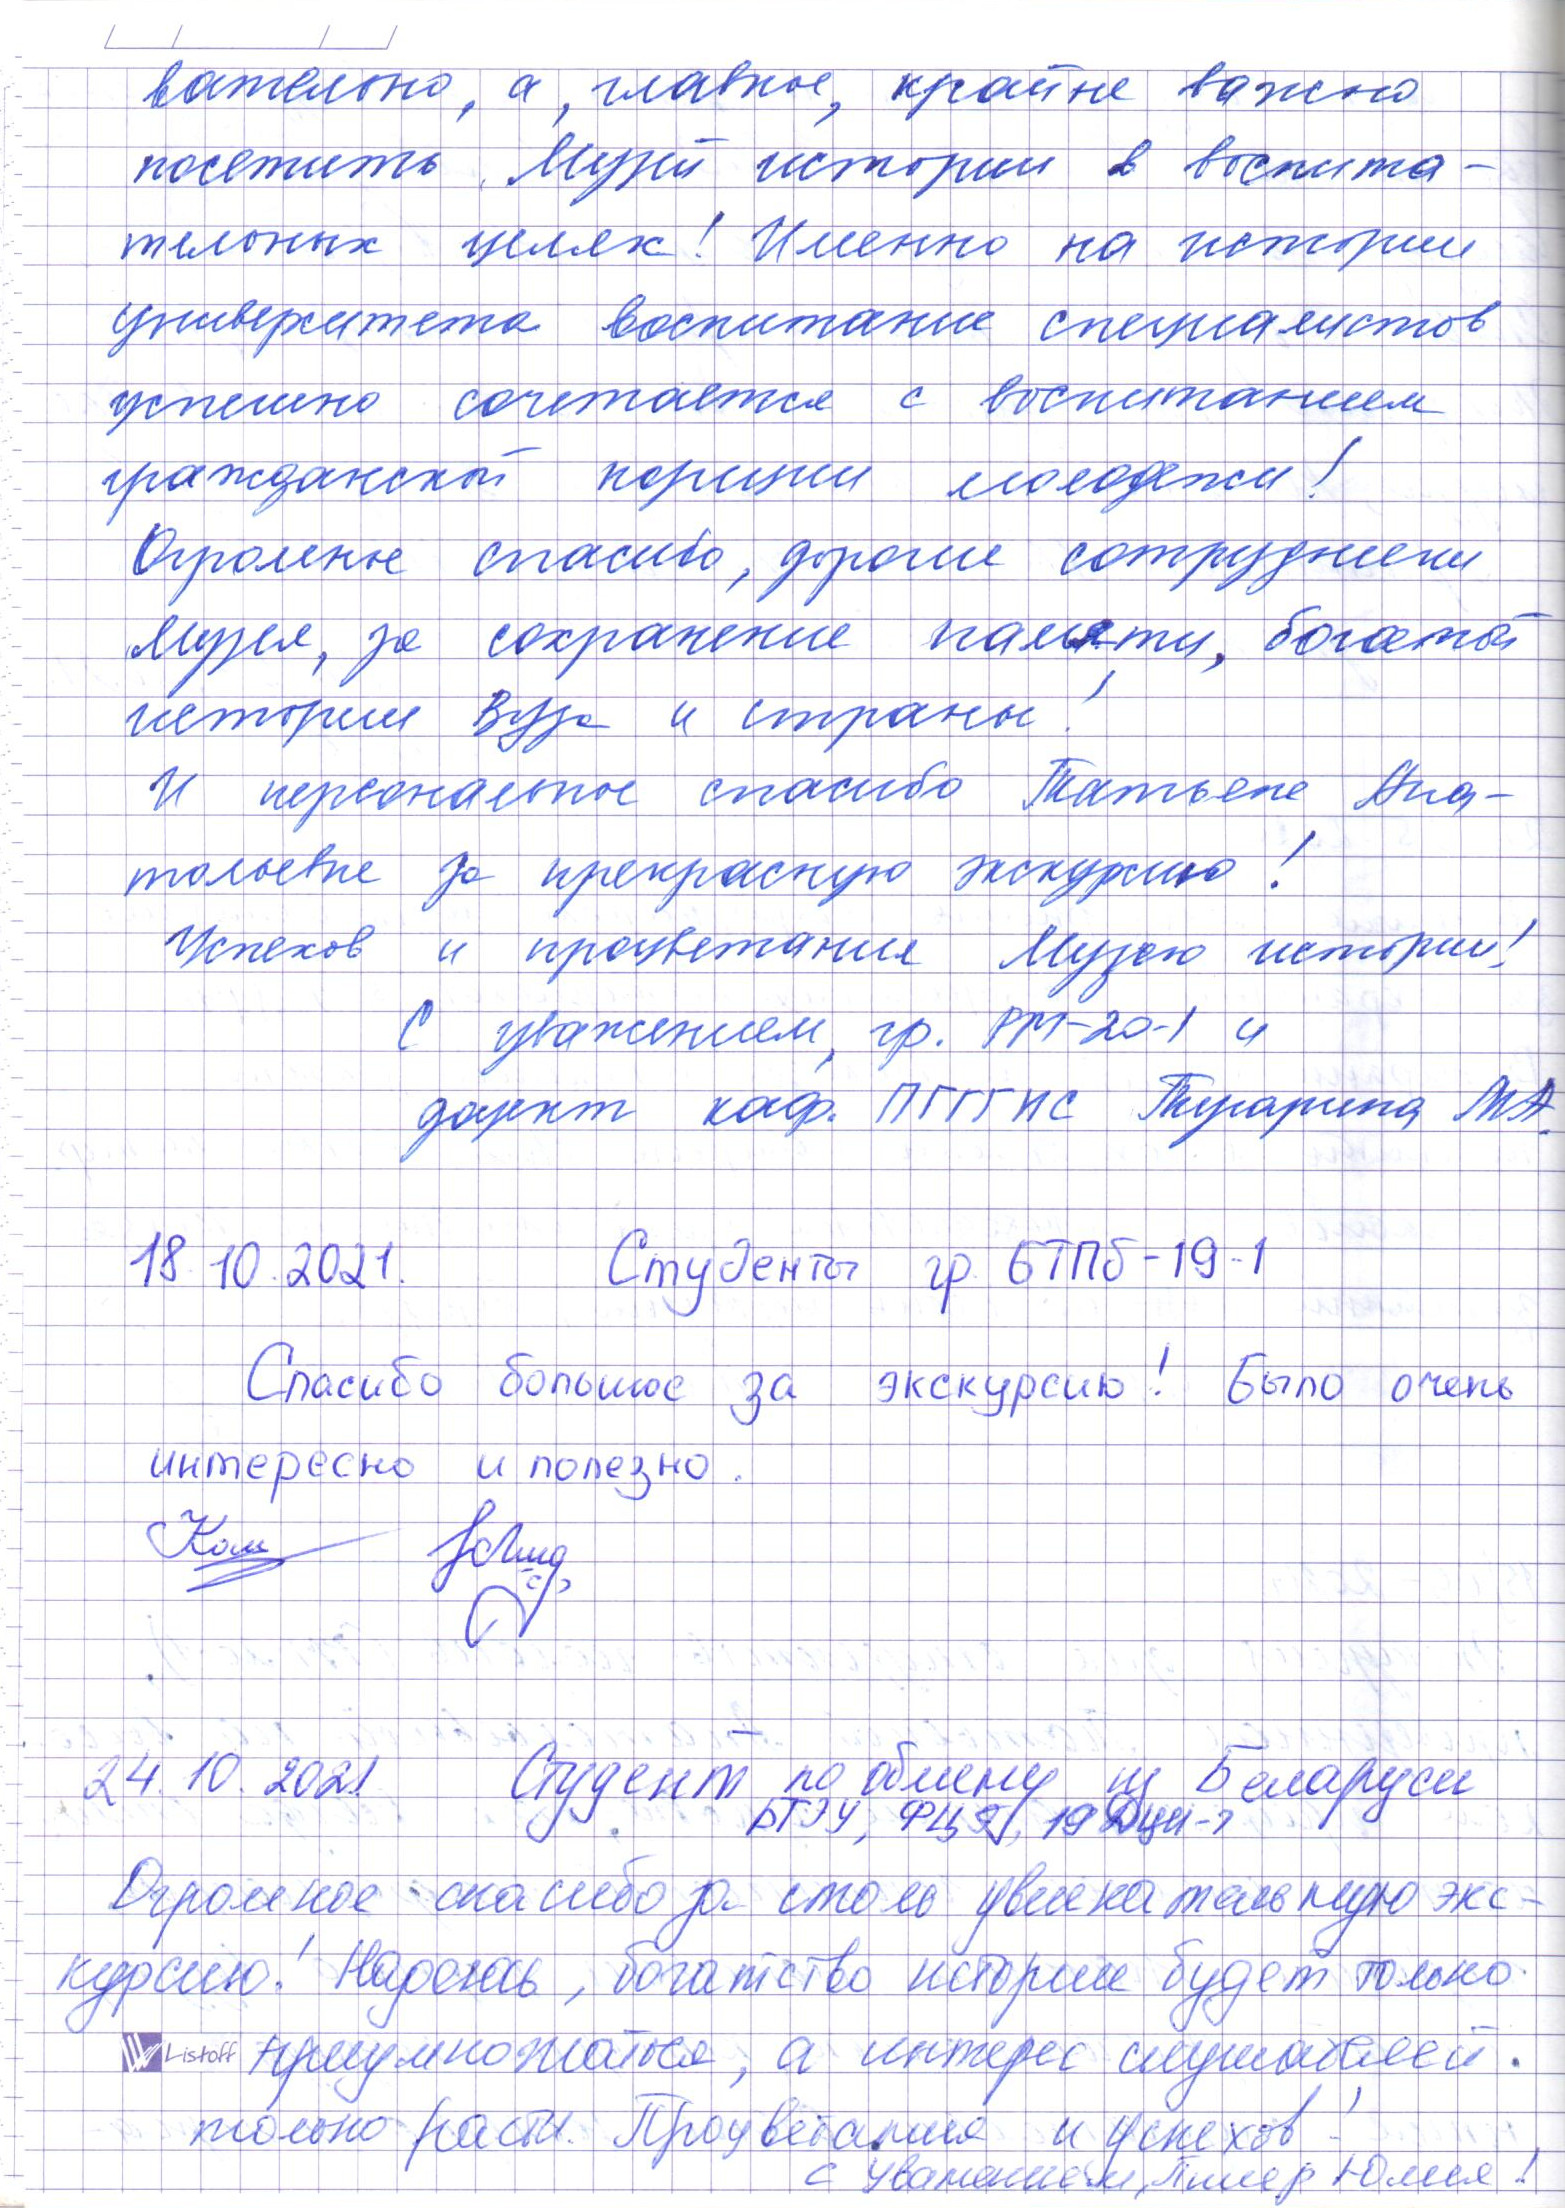 вательно, а, главное, крайне важно
посетить Музей истории в воспита-
тельных целях! Именно на истории
университета воспитание специалистов
успешно сочетается с воспитанием
гражданской позиции молодежи!
Огромное спасибо, дорогие сотрудники
Музея, за сохранение памяти, богатой
истории Вуза и страны!
И персональное спасибо Татьяне Ана-
тольевне за прекрасную экскурсию!
Успехов и процветания Музею истории!
С уважением, гр. РМ-20-1 и
доцент каф. ПГГГИС Тугарина МА.
18.10.2021. Студенты гр. БТПб-19-1
Спасибо большое за экскурсию! Было очень
интересно и полезно.
24.10.2021 Студент по обмену из Беларуси
БГЭУ, ФЦЭ, 19
Огромное спасибо за столь увлекательную экс-
курсию! Надеюсь, богатство истории будет только
Listoff приумножаться, а интерес слушателей
только расти. Процветания и успехов!
с уважением, Юлия!